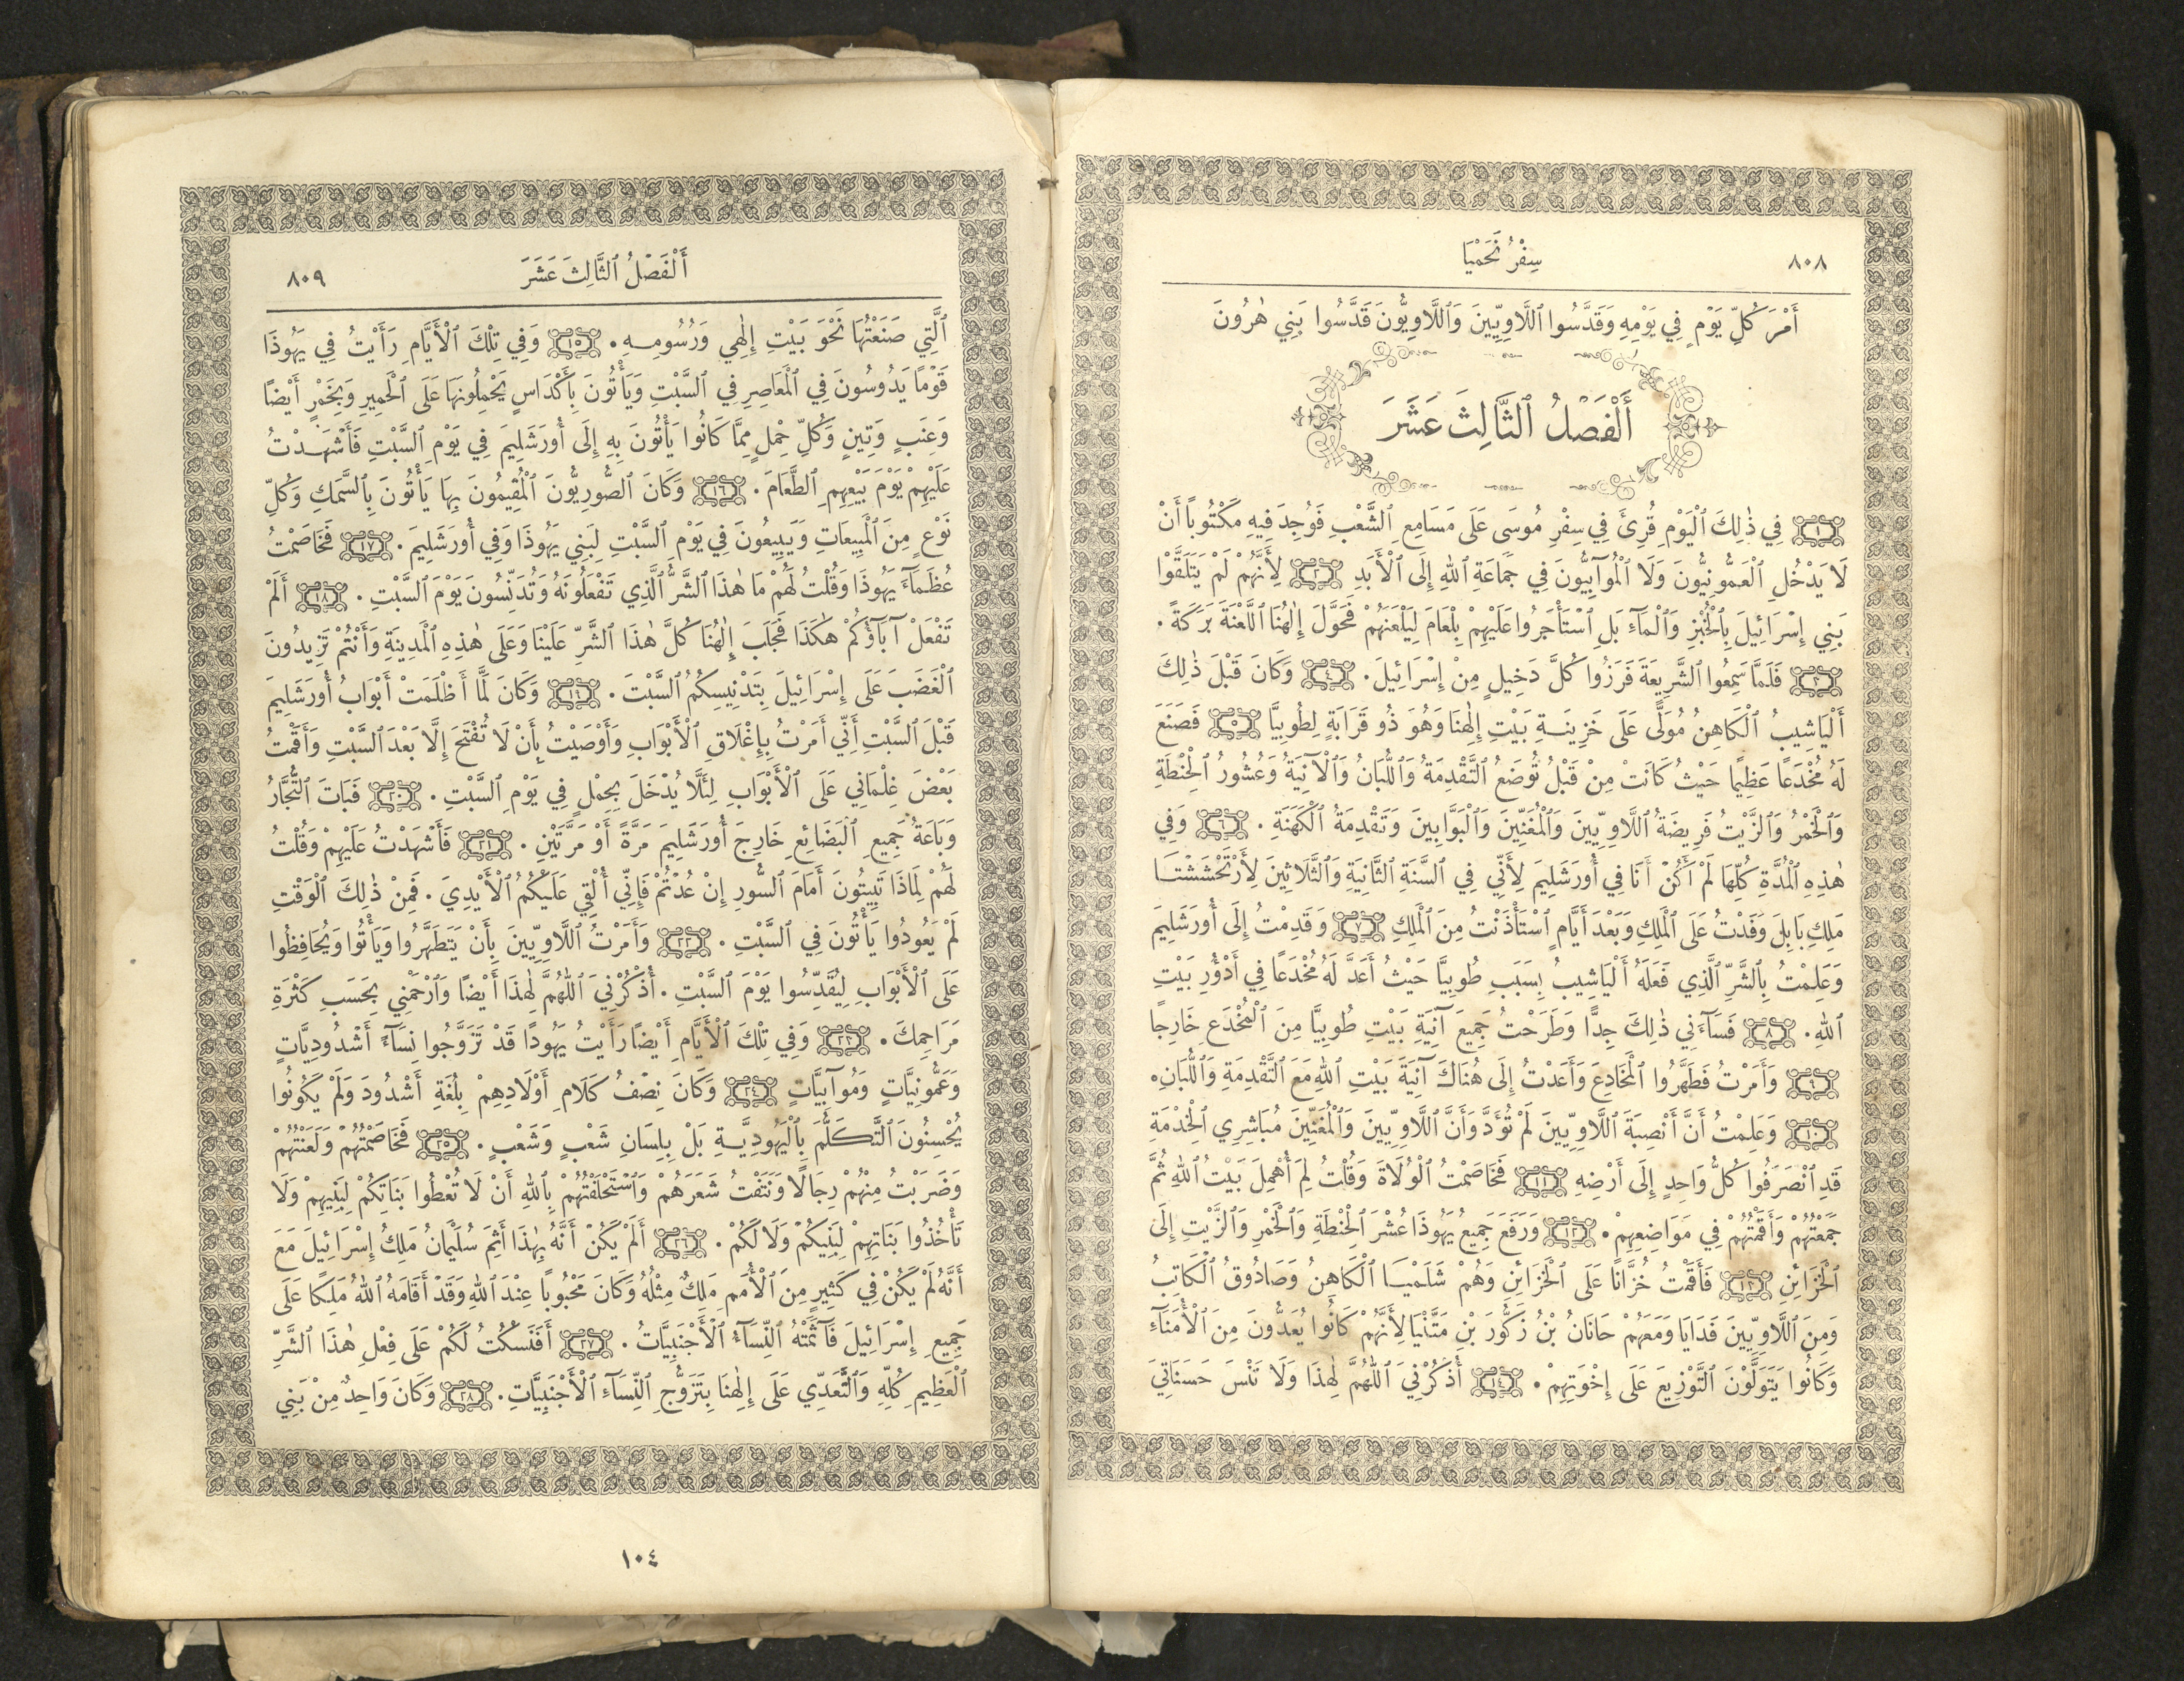 ٨٠٨
سِفْرُ نَحَمْيَا
أَمْرَ كُلِّ يَوْمٍ فِي يَوْمِهِ وَقَدَّسُوا ٱللَّاوِيِّينَ وَٱللَّاوِيُّونَ قَدَّسُوا بَنِي هٰرُونَ
أَلْفَصْلُ ٱلثَّالِثَ عَشَرَ
١ فِي ذٰلِكَ ٱلْيَوْمِ قُرِئَ فِي سِفْرِ مُوسَى عَلَى مَسَامِعِ ٱلشَّعْبِ فَوُجِدَ فِيهِ مَكْتُوبًا أَنْ
لَا يَدْخُلِ ٱلْعَمُّونِيُّونَ وَلَا ٱلْمُوآبِيُّونَ فِي جَمَاعَةِ ٱللهِ إِلَى ٱلْأَبَدِ ٢ لِأَنَّهُمْ لَمْ يَتَلَقَّوْا
بَنِي إِسْرَائِيلَ بِٱلْخُبْزِ وَٱلْمَآءِ بَلِ ٱسْتَأْجَرُوا عَلَيْهِمْ بِلْعَامَ لِيَلْعَنَهُمْ فَحَوَّلَ إِلٰهُنَا ٱللَّعْنَةَ بَرَكَةً.
٣ فَلَمَّا سَمِعُوا ٱلشَّرِيعَةَ فَرَزُوا كُلَّ دَخِيلٍ مِنْ إِسْرَائِيلَ. ٤ وَكَانَ قَبْلَ ذٰلِكَ
أَلْيَاشِيبُ ٱلْكَاهِنُ مُوَلًّى عَلَى خَزِينَةِ بَيْتِ إِلٰهِنَا وَهُوَ ذُو قَرَابَةٍ لِطُوبِيَّا ٥ فَصَنَعَ
لَهُ مُخْدَعًا عَظِيمًا حَيْثُ كَانَتْ مِنْ قَبْلُ تُوضَعُ ٱلتَّقْدِمَةُ وَٱللُّبَانُ وَٱلْآنِيَةُ وَعُشُورُ ٱلْحِنْطَةِ
وَٱلْخَمْرُ وَٱلزَّيْتُ فَرِيضَةُ ٱللَّاوِيِّينَ وَٱلْمُغَنِّينَ وَٱلْبَوَّابِينَ وَتَقْدِمَةُ ٱلْكَهَنَةِ. ٦ وَفِي
هٰذِهِ ٱلْمُدَّةِ كُلِّهَا لَمْ أَكُنْ أَنَا فِي أُورَشَلِيمَ لِأَنِّي فِي ٱلسَّنَةِ ٱلثَّانِيَةِ وَٱلثَّلَاثِينَ لِأَرْتَحْشَشْتَا
مَلِكِ بَابِلَ وَفَدْتُ عَلَى ٱلْمَلِكِ وَبَعْدَ أَيَّامٍ ٱسْتَأْذَنْتُ مِنَ ٱلْمَلِكِ ٧ وَقَدِمْتُ إِلَى أُورَشَلِيمَ
وَعَلِمْتُ بِٱلشَّرِّ ٱلَّذِي فَعَلَهُ أَلْيَاشِيبُ بِسَبَبِ طُوبِيَّا حَيْثُ أَعَدَّ لَهُ مُخْدَعًا فِي أَدْؤُرِ بَيْتِ
ٱللهِ. ٨ فَسَآءَنِي ذٰلِكَ جِدًّا وَطَرَحْتُ جَمِيعَ آنِيَةِ بَيْتِ طُوبِيَّا مِنَ ٱلْمُخْدَعِ خَارِجًا
٩ وَأَمَرْتُ فَطَهَّرُوا ٱلْمَخَادِعَ وَأَعَدْتُ إِلَى هُنَاكَ آنِيَةَ بَيْتِ ٱللهِ مَعَ ٱلتَّقْدِمَةِ وَٱللُّبَانِ.
١٠ وَعَلِمْتُ أَنَّ أَنْصِبَةَ ٱللَّاوِيِّينَ لَمْ تُؤَدَّ وَأَنَّ ٱللَّاوِيِّينَ وَٱلْمُغَنِّينَ مُبَاشِرِي ٱلْخِدْمَةِ
قَدِ ٱنْصَرَفُوا كُلُّ وَاحِدٍ إِلَى أَرْضِهِ ١١ فَخَاصَمْتُ ٱلْوُلَاةَ وَقُلْتُ لِمَ أُهْمِلَ بَيْتُ ٱللهِ ثُمَّ
جَمَعْتُهُمْ وَأَقَمْتُهُمْ فِي مَوَاضِعِهِمْ. ١٢ وَرَفَعَ جَمِيعُ يَهُوذَا عُشْرَ ٱلْحِنْطَةِ وَٱلْخَمْرِ وَٱلزَّيْتِ إِلَى
ٱلْخَزَائِنِ ١٣ فَأَقَمْتُ خُزَّانًا عَلَى ٱلْخَزَائِنِ وَهُمْ شَلَمْيَا ٱلْكَاهِنُ وَصَادُوقُ ٱلْكَاتِبُ
وَمِنَ ٱللَّاوِيِّينَ فَدَايَا وَمَعَهُمْ حَانَانُ بْنُ زَكُّورَ بْنِ مَتَّنْيَا لِأَنَّهُمْ كَانُوا يُعَدُّونَ مِنَ ٱلْأُمَنَآءِ
وَكَانُوا يَتَوَلَّوْنَ ٱلتَّوْزِيعَ عَلَى إِخْوَتِهِمْ. ١٤ أُذْكُرْنِيَ ٱللّٰهُمَّ لِهٰذَا وَلَا تَنْسَ حَسَنَاتِيَ
أَلْفَصْلُ ٱلثَّالِثَ عَشَرَ
٨٠٩
ٱلَّتِي صَنَعْتُهَا نَحْوَ بَيْتِ إِلٰهِي وَرُسُومِهِ. ١٥ وَفِي تِلْكَ ٱلْأَيَّامِ رَأَيْتُ فِي يَهُوذَا
قَوْمًا يَدُوسُونَ فِي ٱلْمَعَاصِرِ فِي ٱلسَّبْتِ وَيَأْتُونَ بِأَكْدَاسٍ يَحْمِلُونَهَا عَلَى ٱلْحَمِيرِ وَبِخَمْرٍ أَيْضًا
وَعِنَبٍ وَتِينٍ وَكُلِّ حِمْلٍ مِمَّا كَانُوا يَأْتُونَ بِهِ إِلَى أُورَشَلِيمَ فِي يَوْمِ ٱلسَّبْتِ فَأَشْهَدْتُ
عَلَيْهِمْ يَوْمَ بَيْعِهِمِ ٱلطَّعَامَ. ١٦ وَكَانَ ٱلصُّورِيُّونَ ٱلْمُقِيمُونَ بِهَا يَأْتُونَ بِٱلسَّمَكِ وَكُلِّ
نَوْعٍ مِنَ ٱلْمَبِيعَاتِ وَيَبِيعُونَ فِي يَوْمِ ٱلسَّبْتِ لِبَنِي يَهُوذَا وَفِي أُورَشَلِيمَ. ١٧ فَخَاصَمْتُ
عُظَمَآءَ يَهُوذَا وَقُلْتُ لَهُمْ مَا هٰذَا ٱلشَّرُّ ٱلَّذِي تَفْعَلُونَهُ وَتُدَنِّسُونَ يَوْمَ ٱلسَّبْتِ. ١٨ أَلَمْ
تَفْعَلْ آبَآؤُكُمْ هٰكَذَا فَجَلَبَ إِلٰهُنَا كُلَّ هٰذَا ٱلشَّرِّ عَلَيْنَا وَعَلَى هٰذِهِ ٱلْمَدِينَةِ وَأَنْتُمْ تَزِيدُونَ
ٱلْغَضَبَ عَلَى إِسْرَائِيلَ بِتَدْنِيسِكُمُ ٱلسَّبْتَ. ١٩ وَكَانَ لَمَّا أَظْلَمَتْ أَبْوَابُ أُورَشَلِيمَ
قَبْلَ ٱلسَّبْتِ أَنِّي أَمَرْتُ بِإِغْلَاقِ ٱلْأَبْوَابِ وَأَوْصَيْتُ بِأَنْ لَا تُفْتَحَ إِلَّا بَعْدَ ٱلسَّبْتِ وَأَقَمْتُ
بَعْضَ غِلْمَانِي عَلَى ٱلْأَبْوَابِ لِئَلَّا يُدْخَلَ بِحِمْلٍ فِي يَوْمِ ٱلسَّبْتِ. ٢٠ فَبَاتَ ٱلتُّجَّارُ
وَبَاعَةُ جَمِيعِ ٱلْبَضَائِعِ خَارِجَ أُورَشَلِيمَ مَرَّةً أَوْ مَرَّتَيْنِ. ٢١ فَأَشْهَدْتُ عَلَيْهِمْ وَقُلْتُ
لَهُمْ لِمَاذَا تَبِيتُونَ أَمَامَ ٱلسُّورِ إِنْ عُدْتُمْ فَإِنِّي أُلْقِي عَلَيْكُمُ ٱلْأَيْدِيَ. فَمِنْ ذٰلِكَ ٱلْوَقْتِ
لَمْ يَعُودُوا يَأْتُونَ فِي ٱلسَّبْتِ. ٢٢ وَأَمَرْتُ ٱللَّاوِيِّينَ بِأَنْ يَتَطَهَّرُوا وَيَأْتُوا وَيُحَافِظُوا
عَلَى ٱلْأَبْوَابِ لِيُقَدِّسُوا يَوْمَ ٱلسَّبْتِ. أُذْكُرْنِيَ ٱللّٰهُمَّ لِهٰذَا أَيْضًا وَٱرْحَمْنِي بِحَسَبِ كَثْرَةِ
مَرَاحِمِكَ. ٢٣ وَفِي تِلْكَ ٱلْأَيَّامِ أَيْضًا رَأَيْتُ يَهُودًا قَدْ تَزَوَّجُوا نِسَآءً أَشْدُودِيَّاتٍ
وَعَمُّونِيَّاتٍ وَمُوآبِيَّاتٍ ٢٤ وَكَانَ نِصْفُ كَلَامِ أَوْلَادِهِمْ بِلُغَةِ أَشْدُودَ وَلَمْ يَكُونُوا
يُحْسِنُونَ ٱلتَّكَلُّمَ بِٱلْيَهُودِيَّةِ بَلْ بِلِسَانِ شَعْبٍ وَشَعْبٍ. ٢٥ فَخَاصَمْتُهُمْ وَلَعَنْتُهُمْ
وَضَرَبْتُ مِنْهُمْ رِجَالًا وَنَتَفْتُ شَعَرَهُمْ وَٱسْتَحْلَفْتُهُمْ بِٱللهِ أَنْ لَا تُعْطُوا بَنَاتِكُمْ لِبَنِيهِمْ وَلَا
تَأْخُذُوا بَنَاتِهِمْ لِبَنِيكُمْ وَلَا لَكُمْ. ٢٦ أَلَمْ يَكُنْ أَنَّهُ بِهٰذَا أَثِمَ سُلَيْمَانُ مَلِكُ إِسْرَائِيلَ مَعَ
أَنَّهُ لَمْ يَكُنْ فِي كَثِيرٍ مِنَ ٱلْأُمَمِ مَلِكٌ مِثْلُهُ وَكَانَ مَحْبُوبًا عِنْدَ ٱللهِ وَقَدْ أَقَامَهُ ٱللهُ مَلِكًا عَلَى
جَمِيعِ إِسْرَائِيلَ فَآثَمَتْهُ ٱلنِّسَآءُ ٱلْأَجْنَبِيَّاتُ. ٢٧ أَفَنَسْكُتُ لَكُمْ عَلَى فِعْلِ هٰذَا ٱلشَّرِّ
ٱلْعَظِيمِ كُلِّهِ وَٱلتَّعَدِّي عَلَى إِلٰهِنَا بِتَزَوُّجِ ٱلنِّسَآءِ ٱلْأَجْنَبِيَّاتِ. ٢٨ وَكَانَ وَاحِدٌ مِنْ بَنِي
١٠٤